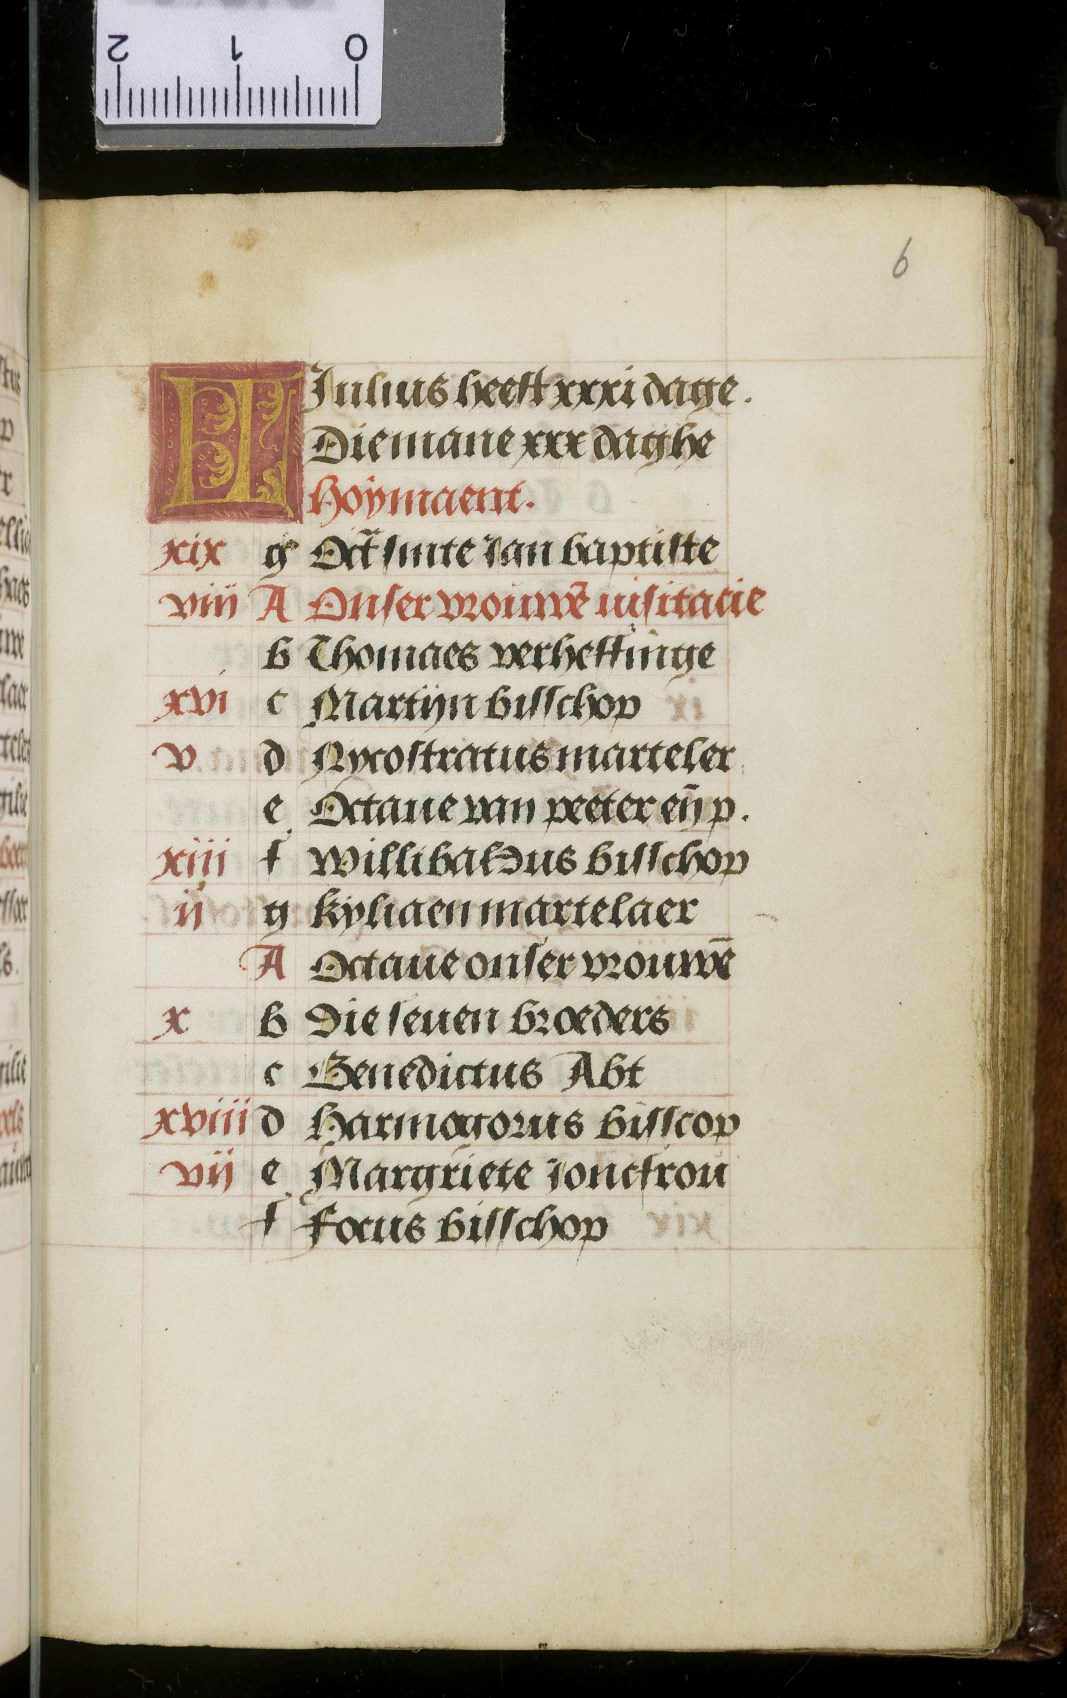 2 1 0
6
KL Iulius heeft xxxi dage.
Die mane xxx daghe
hoymaent.
xix g Oct̄ sinte Ian baptiste
viii A Onser vrouwē uisitatie
b Thomaes verheffinge
xvi c Martijn bisschop
v d Nycostratus marteler
e Octaue van peeter en̄ p.
xiii f Willibaldus bisschop
ij g kyliaen martelaer
A Octaue onser vrouwē
x b Die seuen broeders
c Benedictus Abt
xviii d Harmogorus bisscop
vij e Margriete Ioncfrou
f Focus bisschop